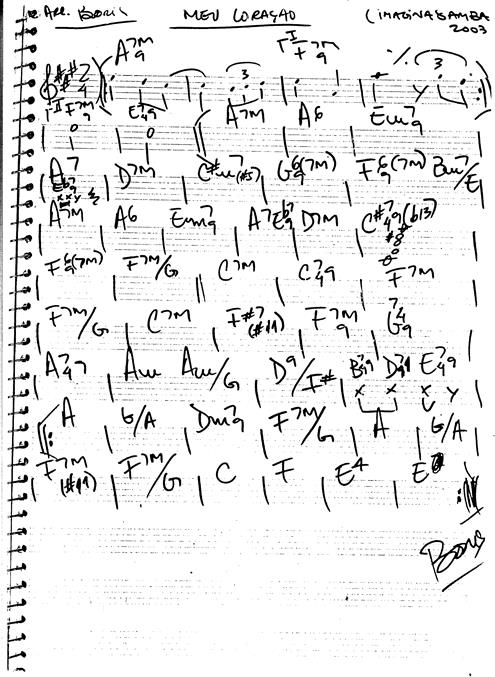 Arr. Boris MEU CORAÇÃO (IMAGINASAMBA
2003
A7M 9 F7M 9 %
2 4 3 3
F7M 9 E7 4 9 A7M A6 Em7 9
A7 Eb7 9 D7M C#m7 (#5) G6 9 (7M) F6 9 (7M) Bm7/E
A7M A6 Em7 9 A7 Eb7 9 D7M C#7 4 9 (b13)
F6 9 (7M) F7M/G C7M C7 4 9 F7M
F7M/G C7M F#7 (#11) F7M 9 G7 4 9
A7 4 9 Am Am/G D9/F# B7 4 9 D7 4 9 E7 4 9
A G/A Dm7 9 F7M/G A G/A
F7M (#11) F7M/G C F E4 E
Boris